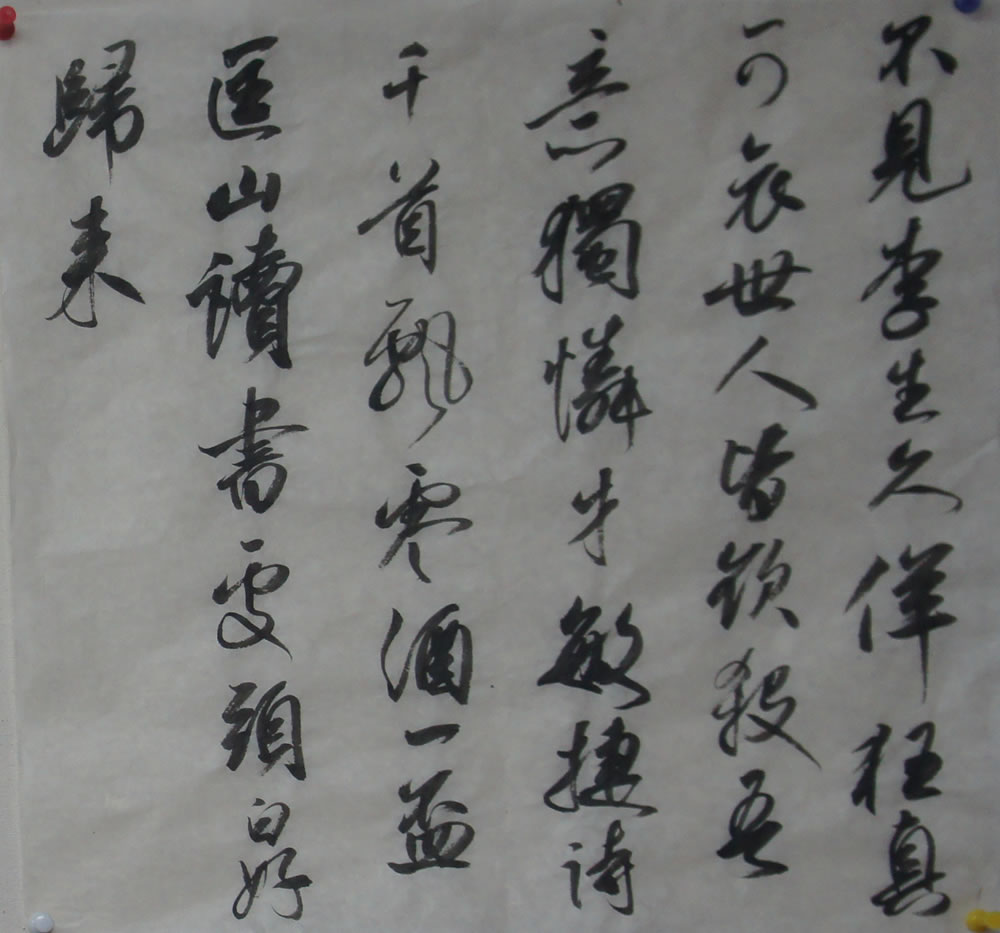 不見李生久佯狂真
可哀世人皆欲殺吾
意獨憐才敏捷詩
千首飄零酒一盃
匡山讀書處頭白好
歸來